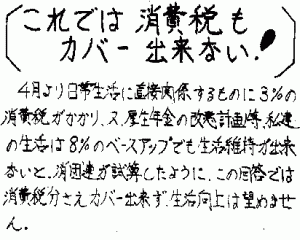 これでは 消費税も
カバー 出来ない.!
4月より日常生活に直接関係するものに3%の
消費税がかかり、又、厚生年金の改悪計画等、私達
の生活は8%のベースアップでも生活維持が出来
ないと、消団連が試算したように、この回答では
消費税分さえカバー出来ず、生活向上は望めませ
ん.